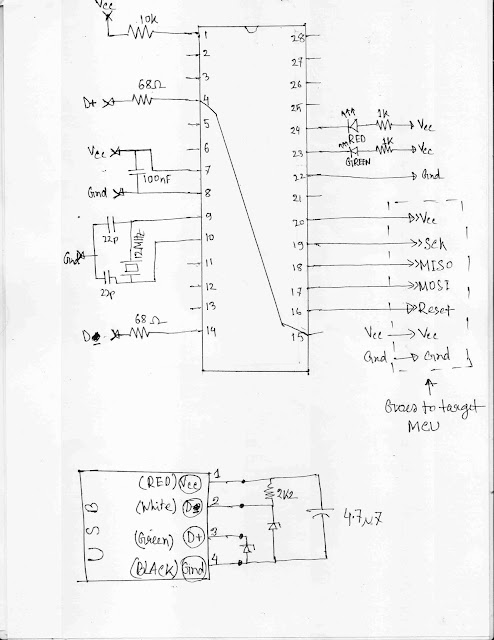 Vcc
10K
1
28
2
27
3
26
68Ω
D+
4
25
5
24
RED
1K
Vcc
Vcc
6
23
GREEN
1K
Vcc
100nF
7
22
Gnd
Gnd
8
21
9
20
Vcc
22p
12MHz
10
19
Sck
Gnd
11
18
MISO
22p
12
17
MOSI
13
16
Reset
68Ω
D-
14
15
Vcc
Vcc
Gnd
Gnd
Goes to target
MCU
USB
(RED) Vcc
1
2K2
(White) D-
2
4.7μ7
(Green) D+
3
(BLACK) Gnd
4